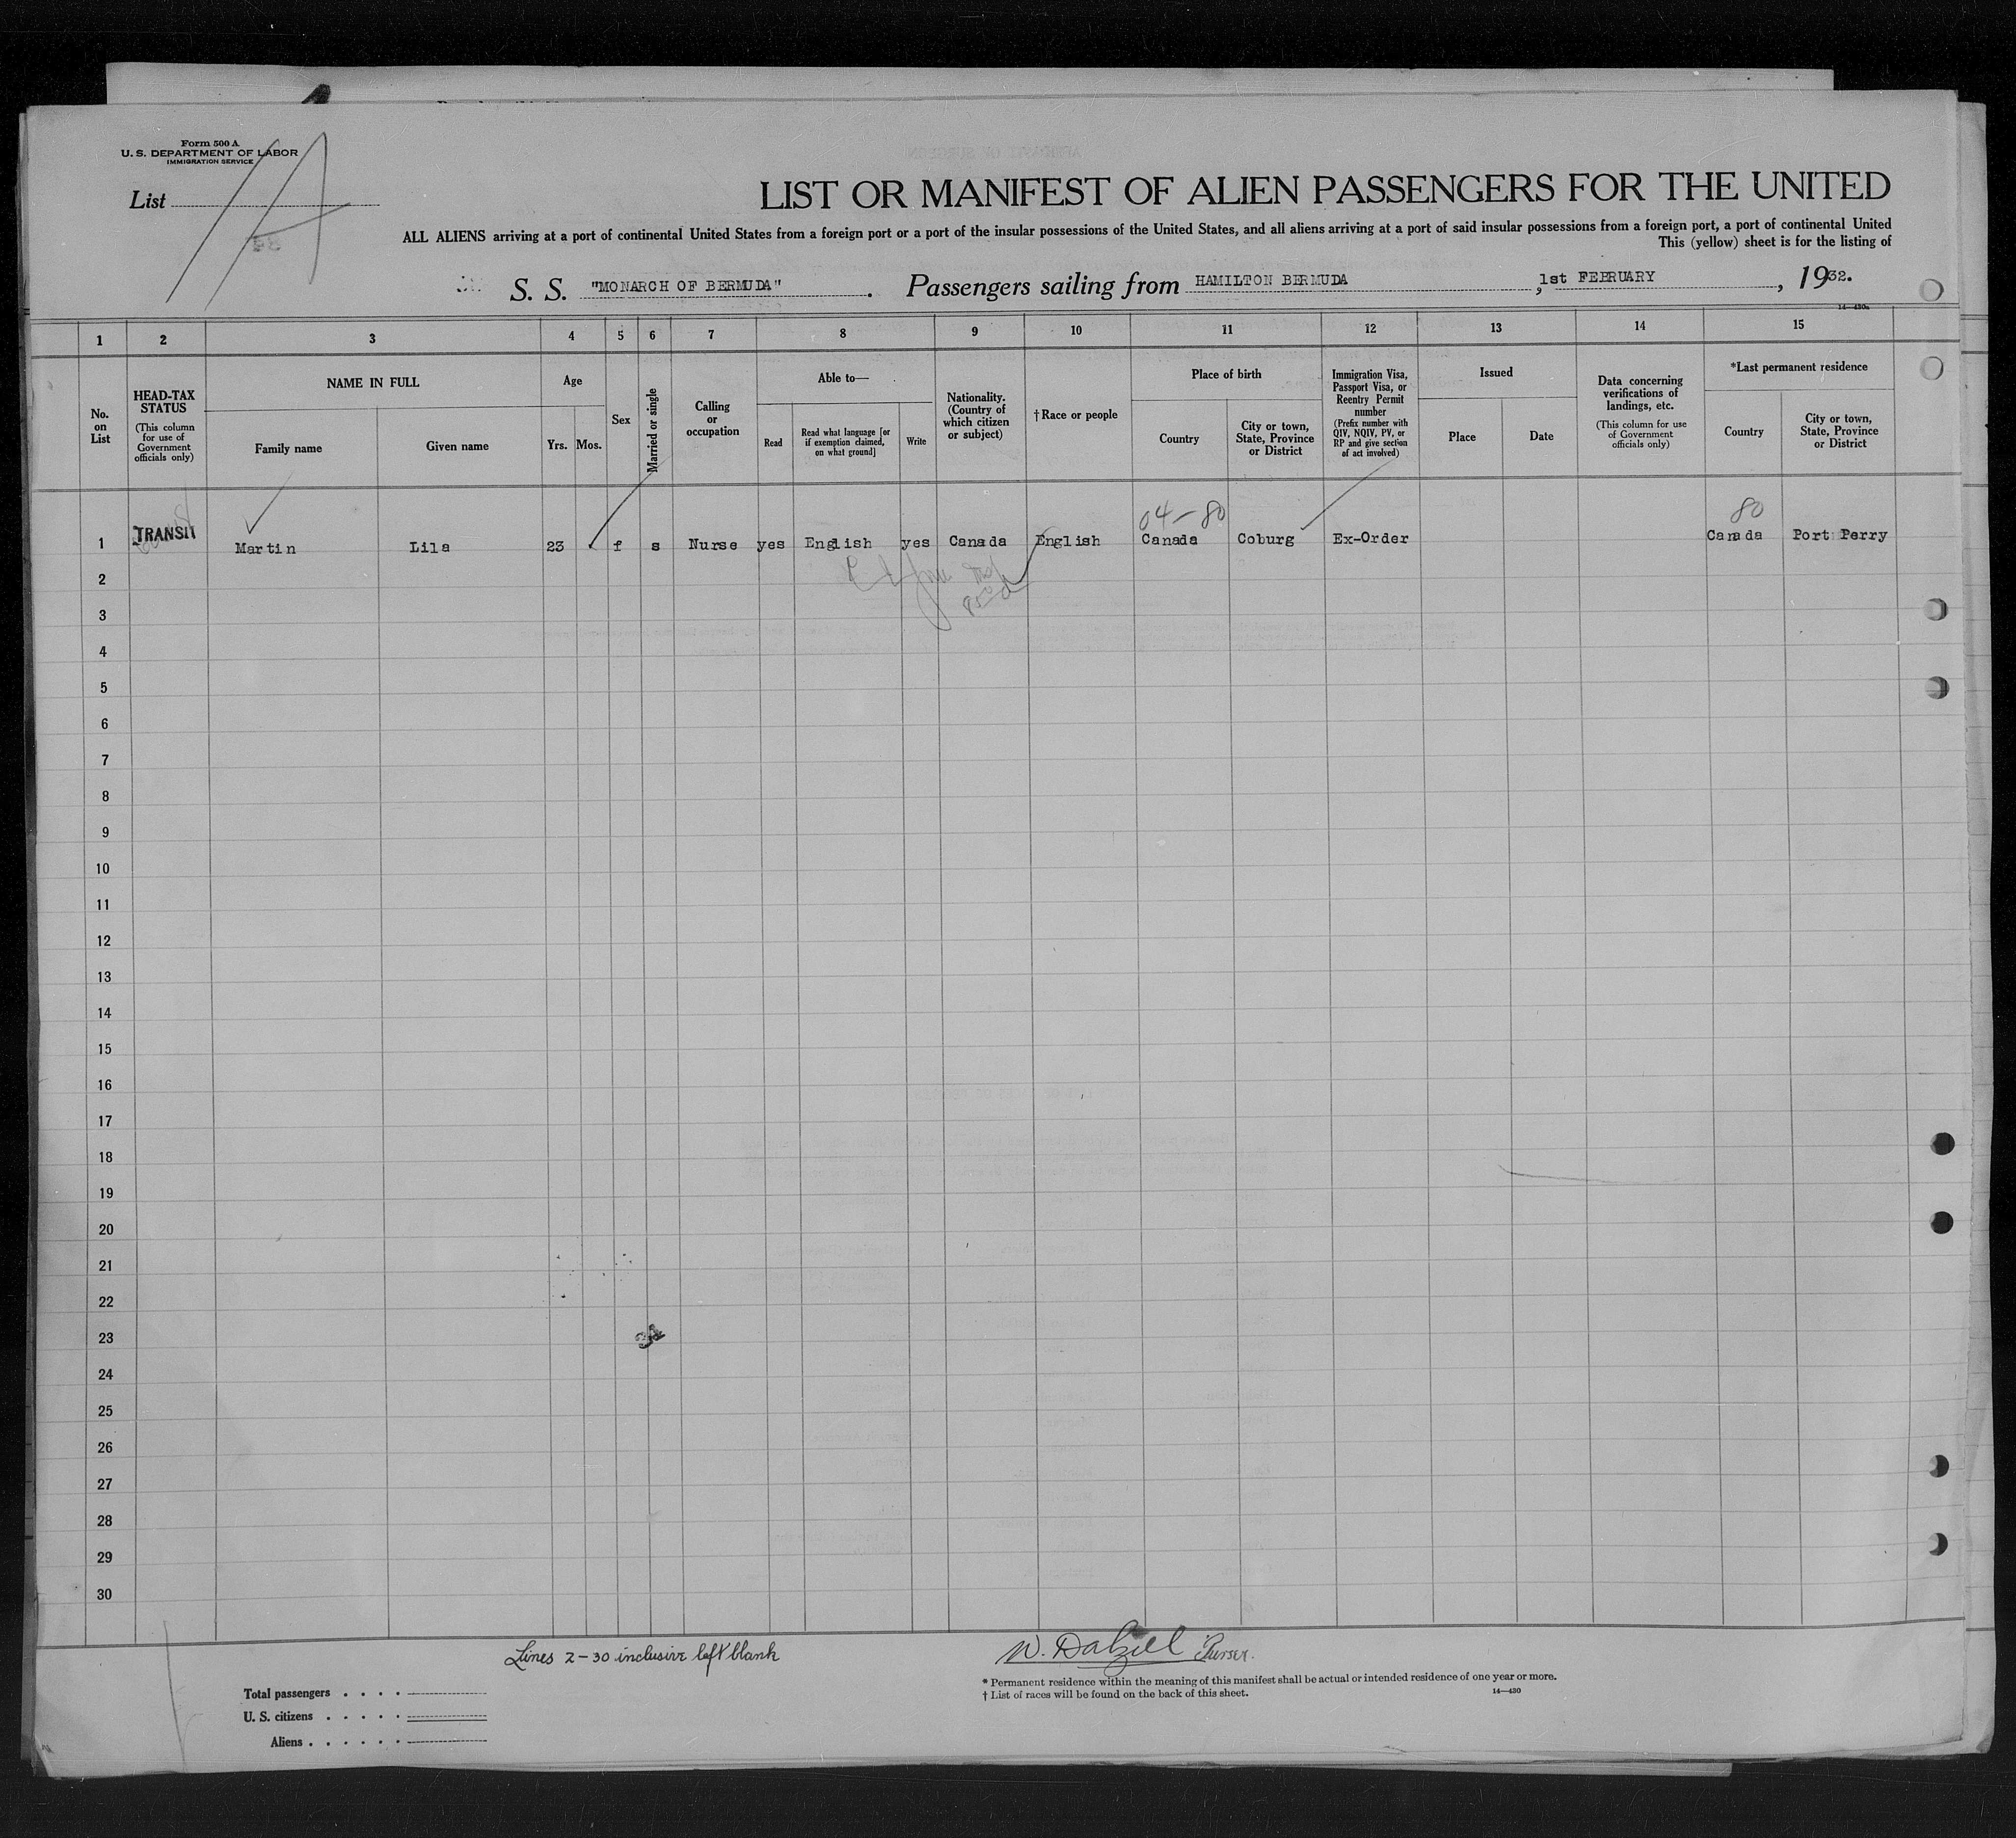 Form 500 A
U. S. DEPARTMENT OF LABOR
IMMIGRATION SERVICE
List 1A
LIST OR MANIFEST OF ALIEN PASSENGERS FOR THE UNITED
ALL ALIENS arriving at a port of continental United States from a foreign port or a port of the insular possessions of the United States, and all aliens arriving at a port of said insular possessions from a foreign port, a port of continental United
This (yellow) sheet is for the listing of
S. S. "MONARCH OF BERMUDA". Passengers sailing from HAMILTON BERMUDA, 1st FEBRUARY, 1932.
14—430a
1 2 3 4 5 6 7 8 9 10 11 12 13 14 15
No. on List
HEAD-TAX STATUS
(This column for use of Government officials only)
NAME IN FULL
Family name
Given name
Age
Yrs. Mos.
Sex
Married or single
Calling or occupation
Able to—
Read
Read what language [or if exemption claimed, on what ground]
Write
Nationality. (Country of which citizen or subject)
†Race or people
Place of birth
Country
City or town, State, Province or District
Immigration Visa, Passport Visa, or Reentry Permit number
(Prefix number with QIV, NQIV, PV, or RP and give section of act involved)
Issued
Place
Date
Data concerning verifications of landings, etc.
(This column for use of Government officials only)
*Last permanent residence
Country
City or town, State, Province or District
04-80 80
1 TRANSIT Martin Lila 23 f s Nurse yes English yes Canada English Canada Coburg Ex-Order Canada Port Perry
2
3
4
5
6
7
8
9
10
11
12
13
14
15
16
17
18
19
20
21
22
23
24
25
26
27
28
29
30
Lines 2-30 inclusive left blank
W. Dalziell Purser.
* Permanent residence within the meaning of this manifest shall be actual or intended residence of one year or more.
† List of races will be found on the back of this sheet.
14—430
Total passengers . . . .
U. S. citizens . . . . .
Aliens . . . . . .